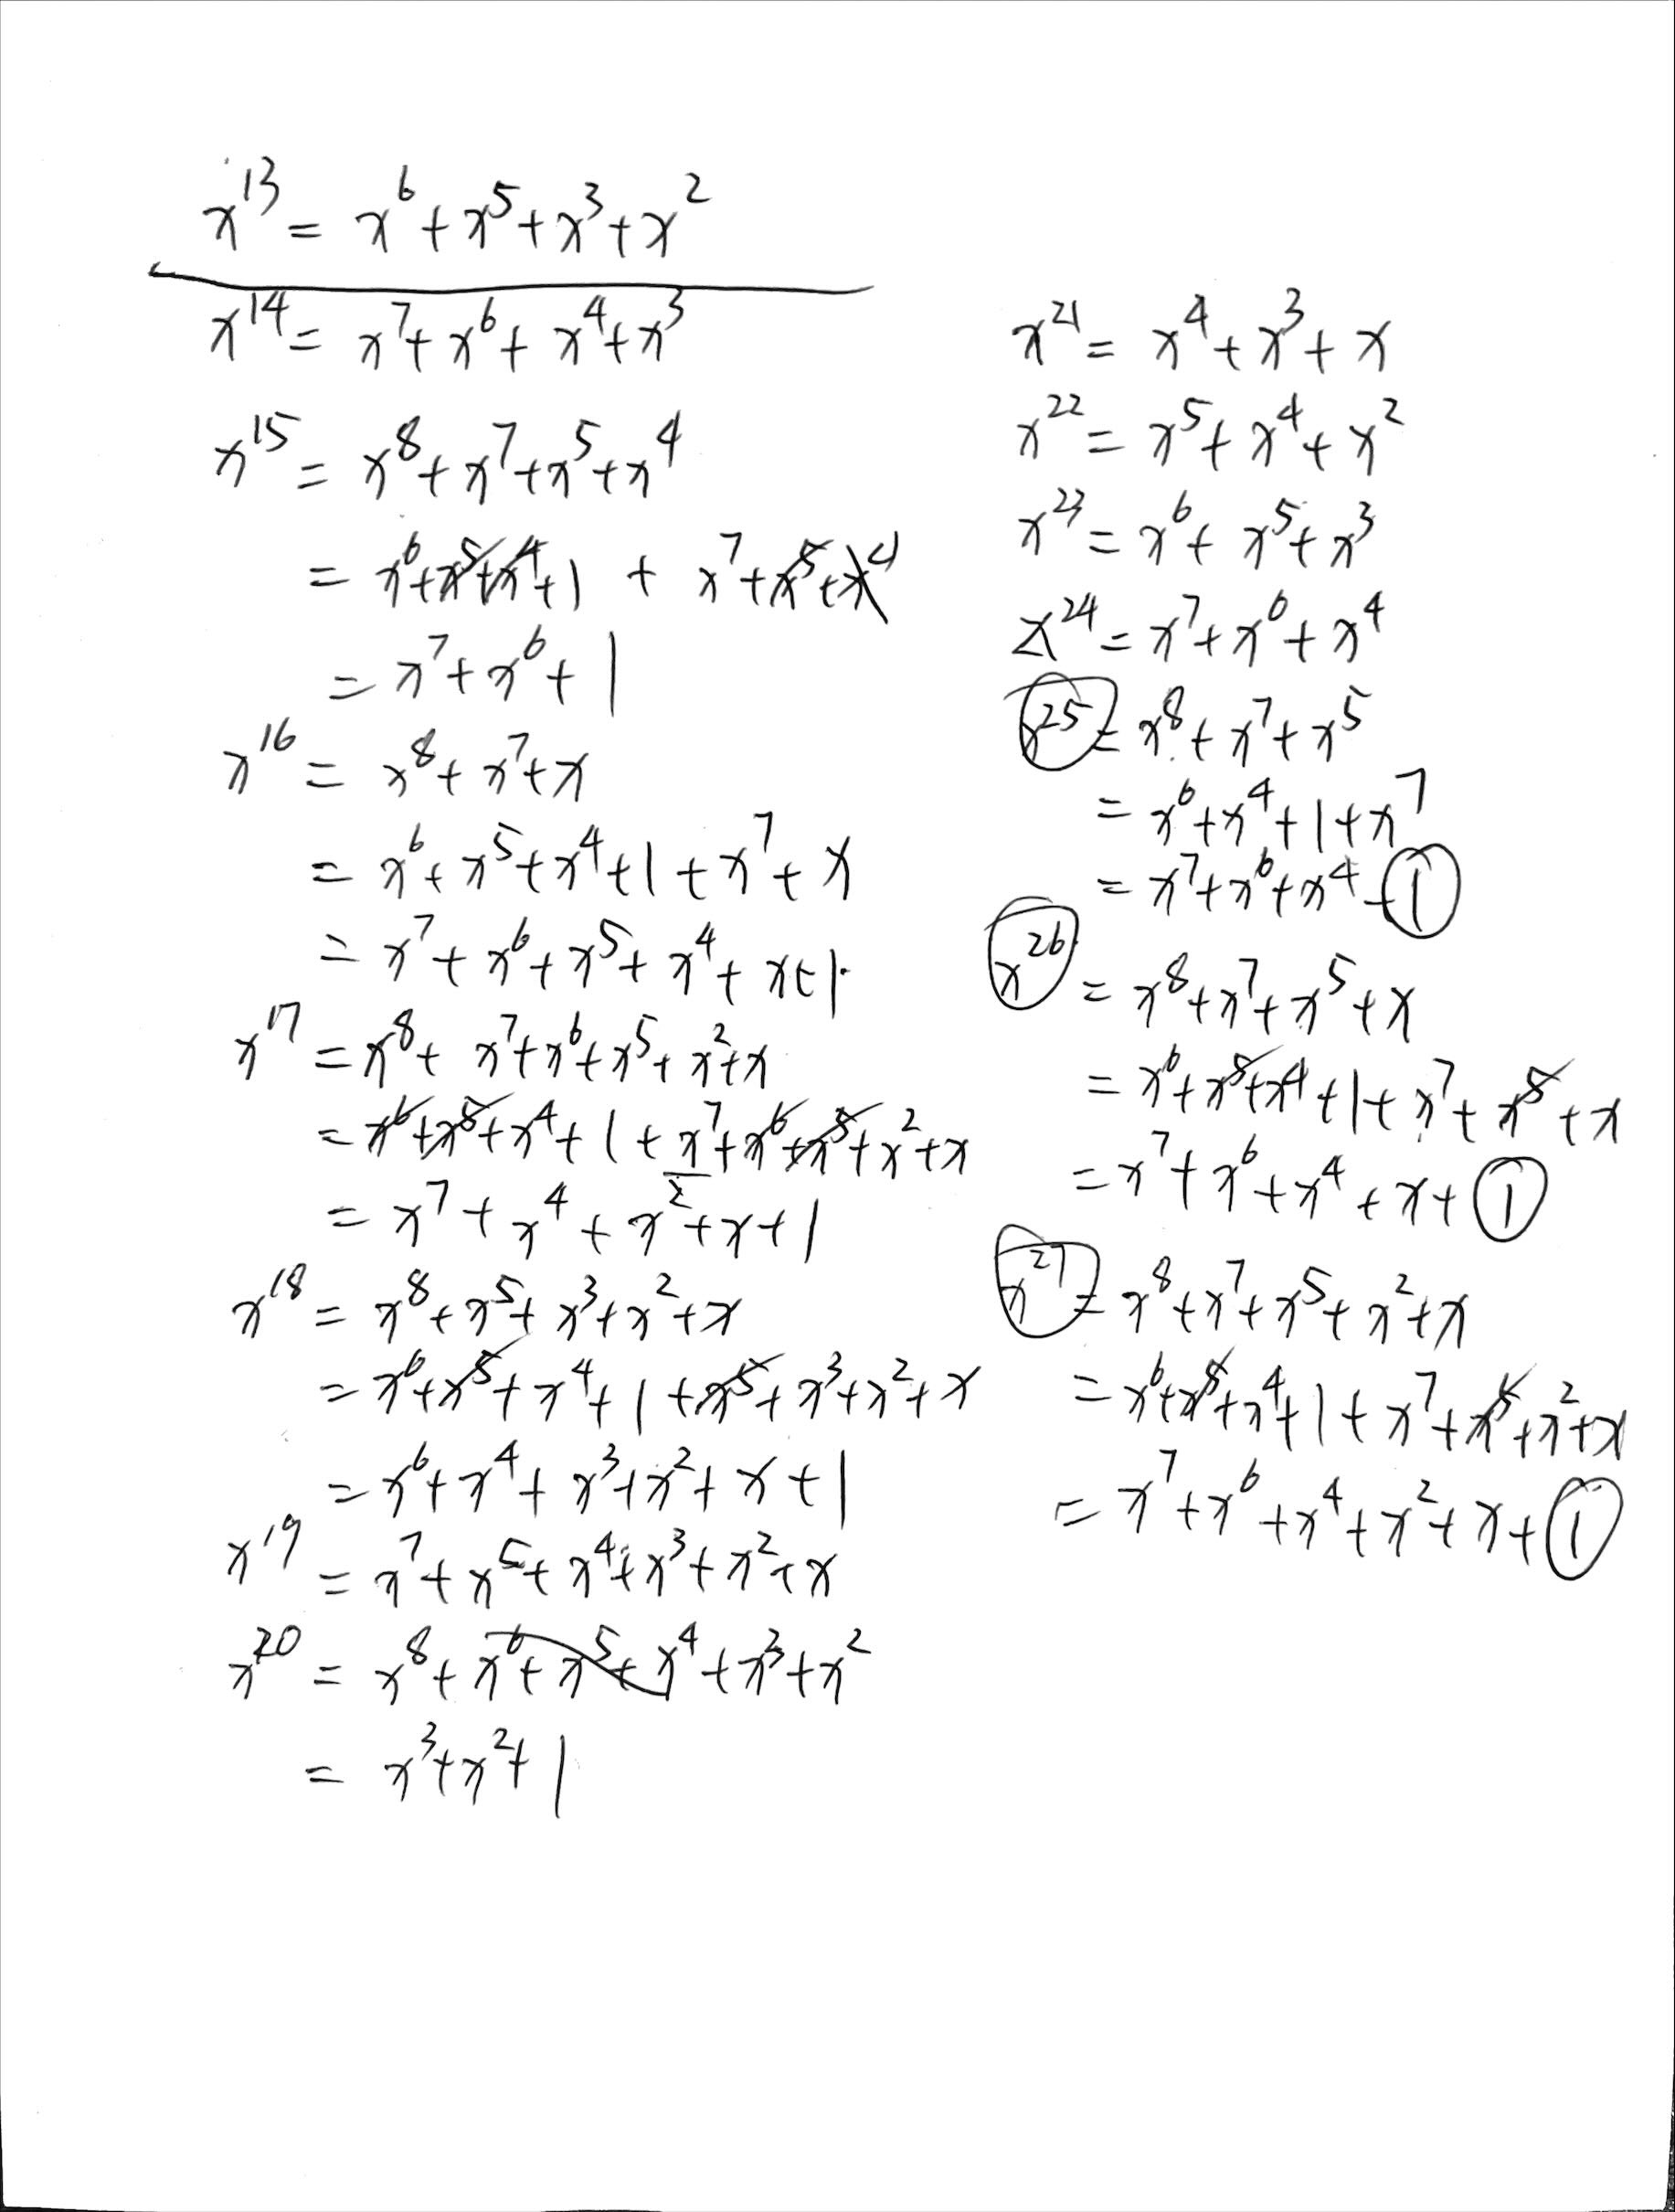 x¹³ = x⁶ + x⁵ + x³ + x²
x¹⁴ = x⁷ + x⁶ + x⁴ + x³
x¹⁵ = x⁸ + x⁷ + x⁵ + x⁴
= x⁶ + x⁵ + x⁴ + 1 + x⁷ + x⁵ + x⁴
= x⁷ + x⁶ + 1
x¹⁶ = x⁸ + x⁷ + x
= x⁶ + x⁵ + x⁴ + 1 + x⁷ + x
= x⁷ + x⁶ + x⁵ + x⁴ + x + 1
x¹⁷ = x⁸ + x⁷ + x⁶ + x⁵ + x² + x
= x⁶ + x⁵ + x⁴ + 1 + x⁷ + x⁶ + x⁵ + x² + x
= x⁷ + x⁴ + x² + x + 1
x¹⁸ = x⁸ + x⁵ + x³ + x² + x
= x⁶ + x⁵ + x⁴ + 1 + x⁵ + x³ + x² + x
= x⁶ + x⁴ + x³ + x² + x + 1
x¹⁹ = x⁷ + x⁵ + x⁴ + x³ + x² + x
x²⁰ = x⁸ + x⁶ + x⁵ + x⁴ + x³ + x²
= x³ + x² + 1
x²¹ = x⁴ + x³ + x
x²² = x⁵ + x⁴ + x²
x²³ = x⁶ + x⁵ + x³
x²⁴ = x⁷ + x⁶ + x⁴
x²⁵ = x⁸ + x⁷ + x⁵
= x⁶ + x⁴ + 1 + x⁷
= x⁷ + x⁶ + x⁴ + 1
x²⁶ = x⁸ + x⁷ + x⁵ + x
= x⁶ + x⁵ + x⁴ + 1 + x⁷ + x⁵ + x
= x⁷ + x⁶ + x⁴ + x + 1
x²⁷ = x⁸ + x⁷ + x⁵ + x² + x
= x⁶ + x⁵ + x⁴ + 1 + x⁷ + x⁵ + x² + x
= x⁷ + x⁶ + x⁴ + x² + x + 1